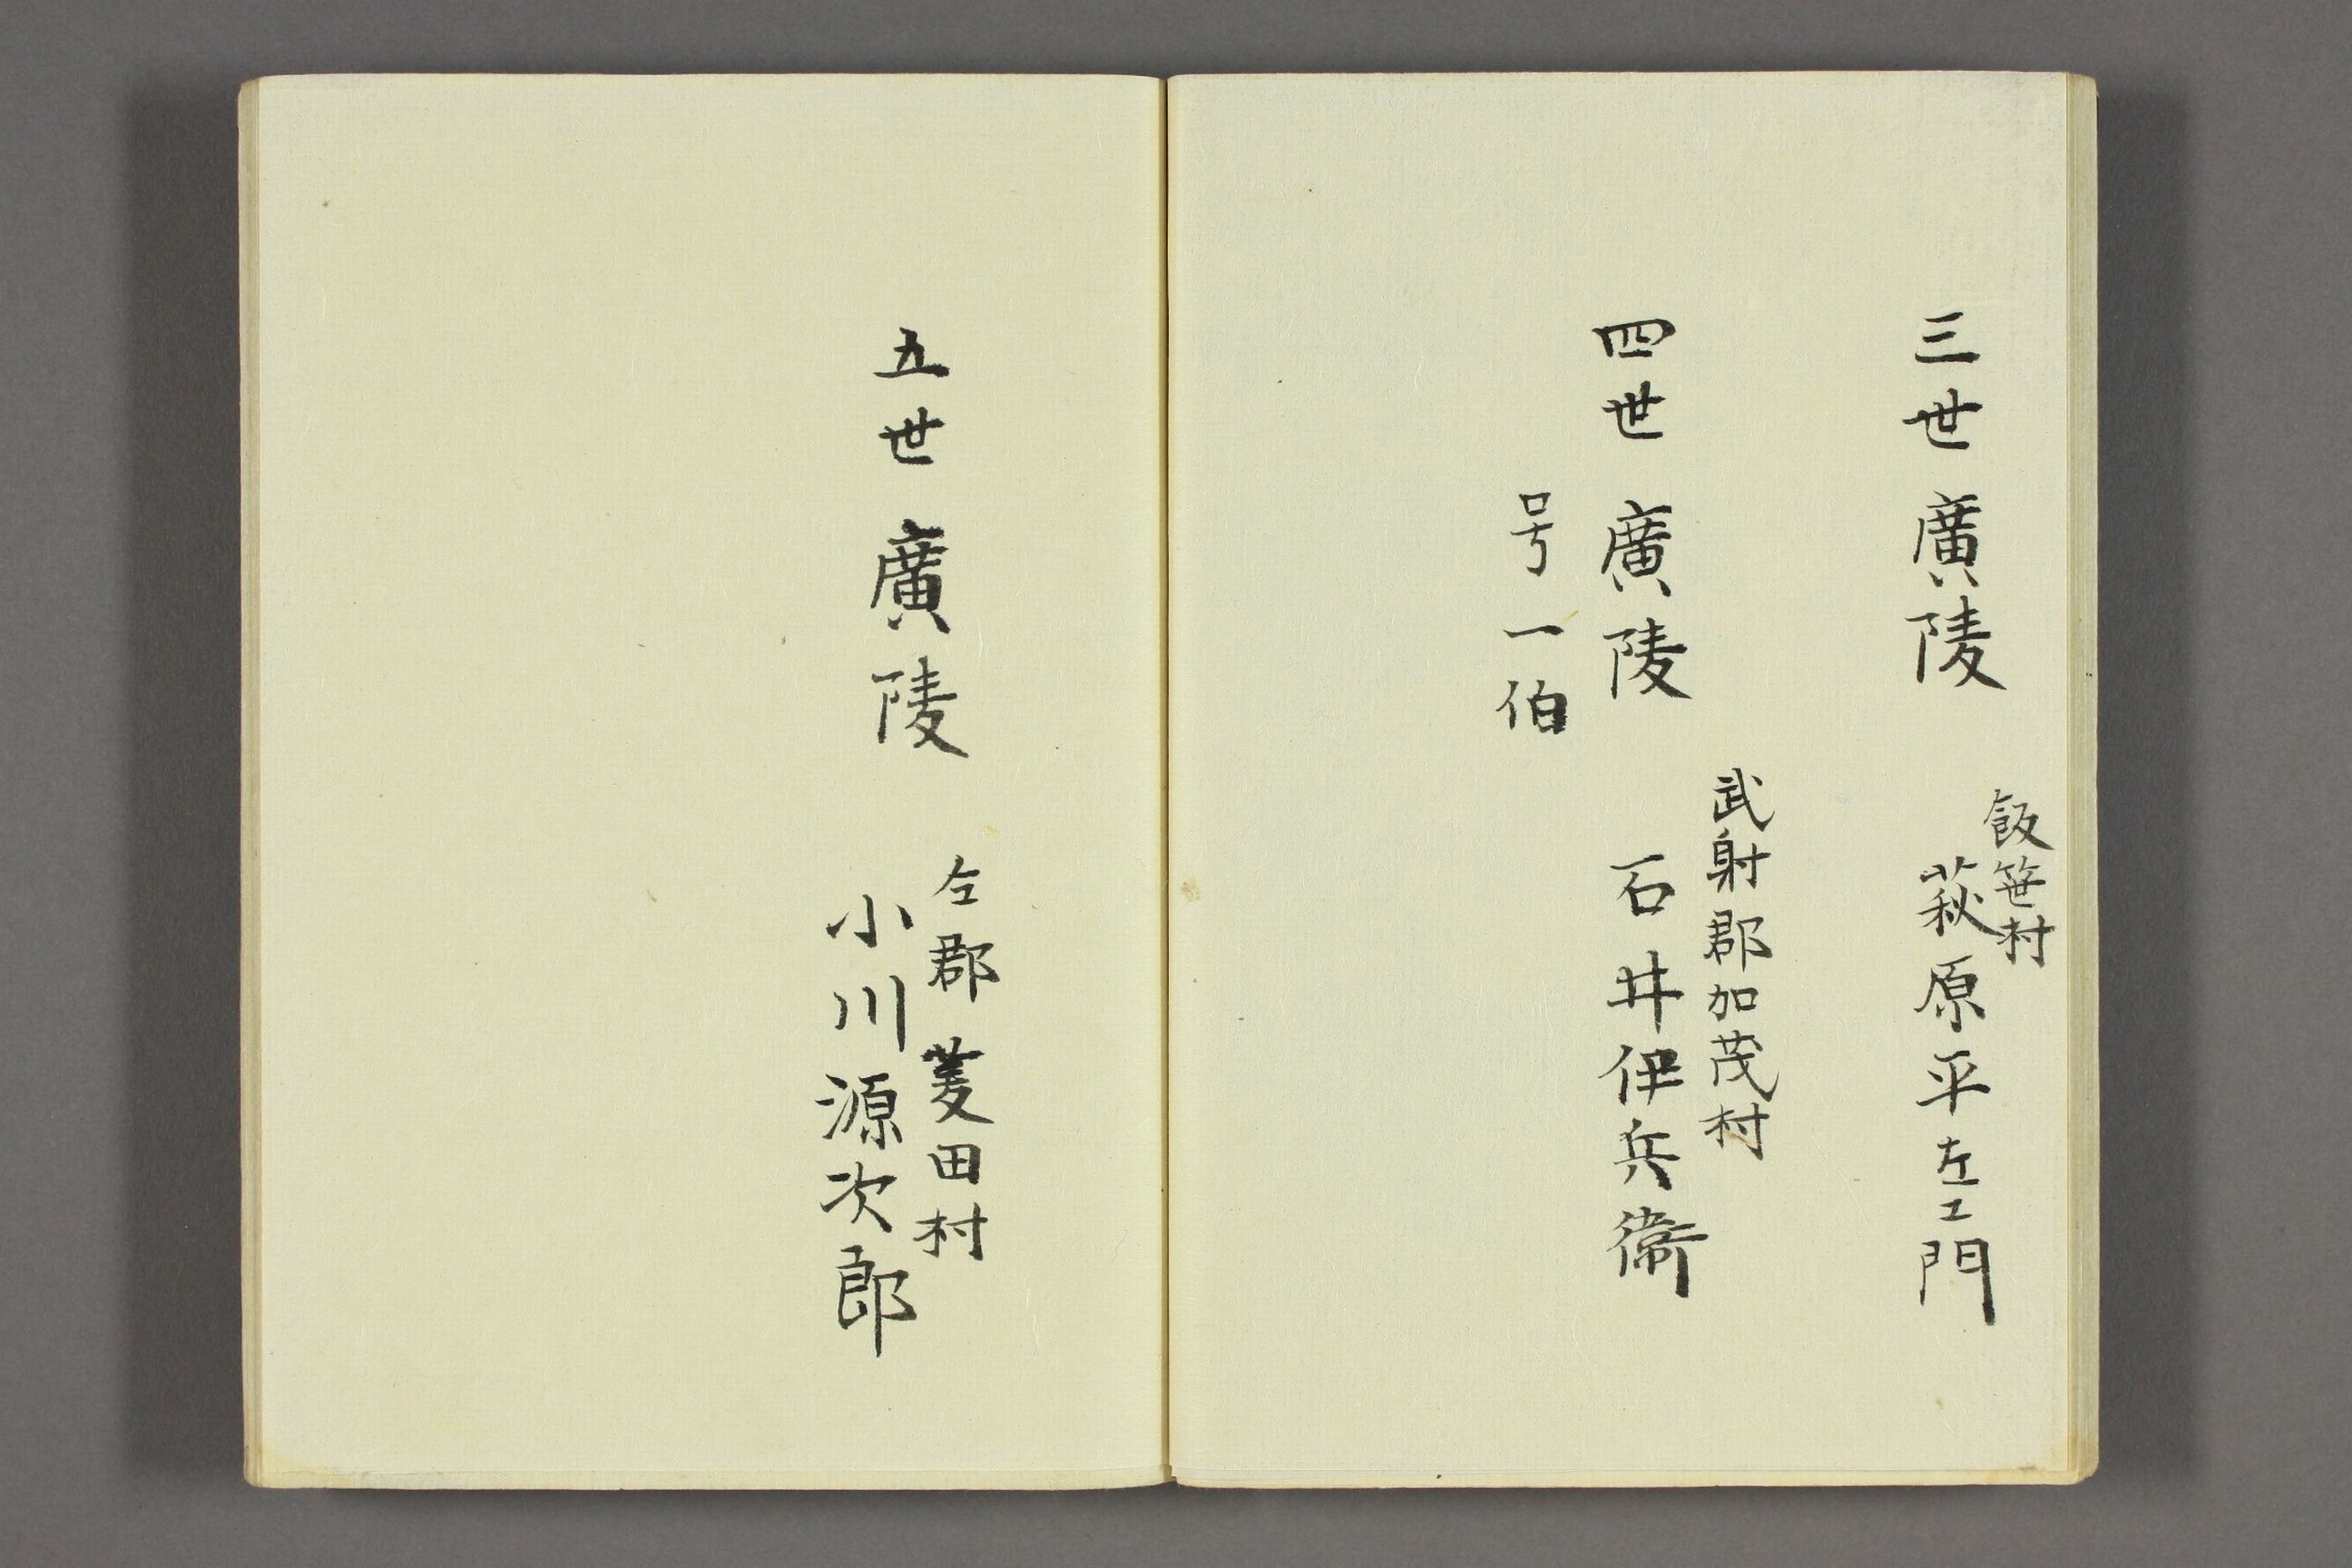 三世廣陵
飯笹村
萩原平左エ門
四世廣陵
武射郡加茂村
石井伊兵衛
号一伯
五世廣陵
仝郡菱田村
小川源次郎